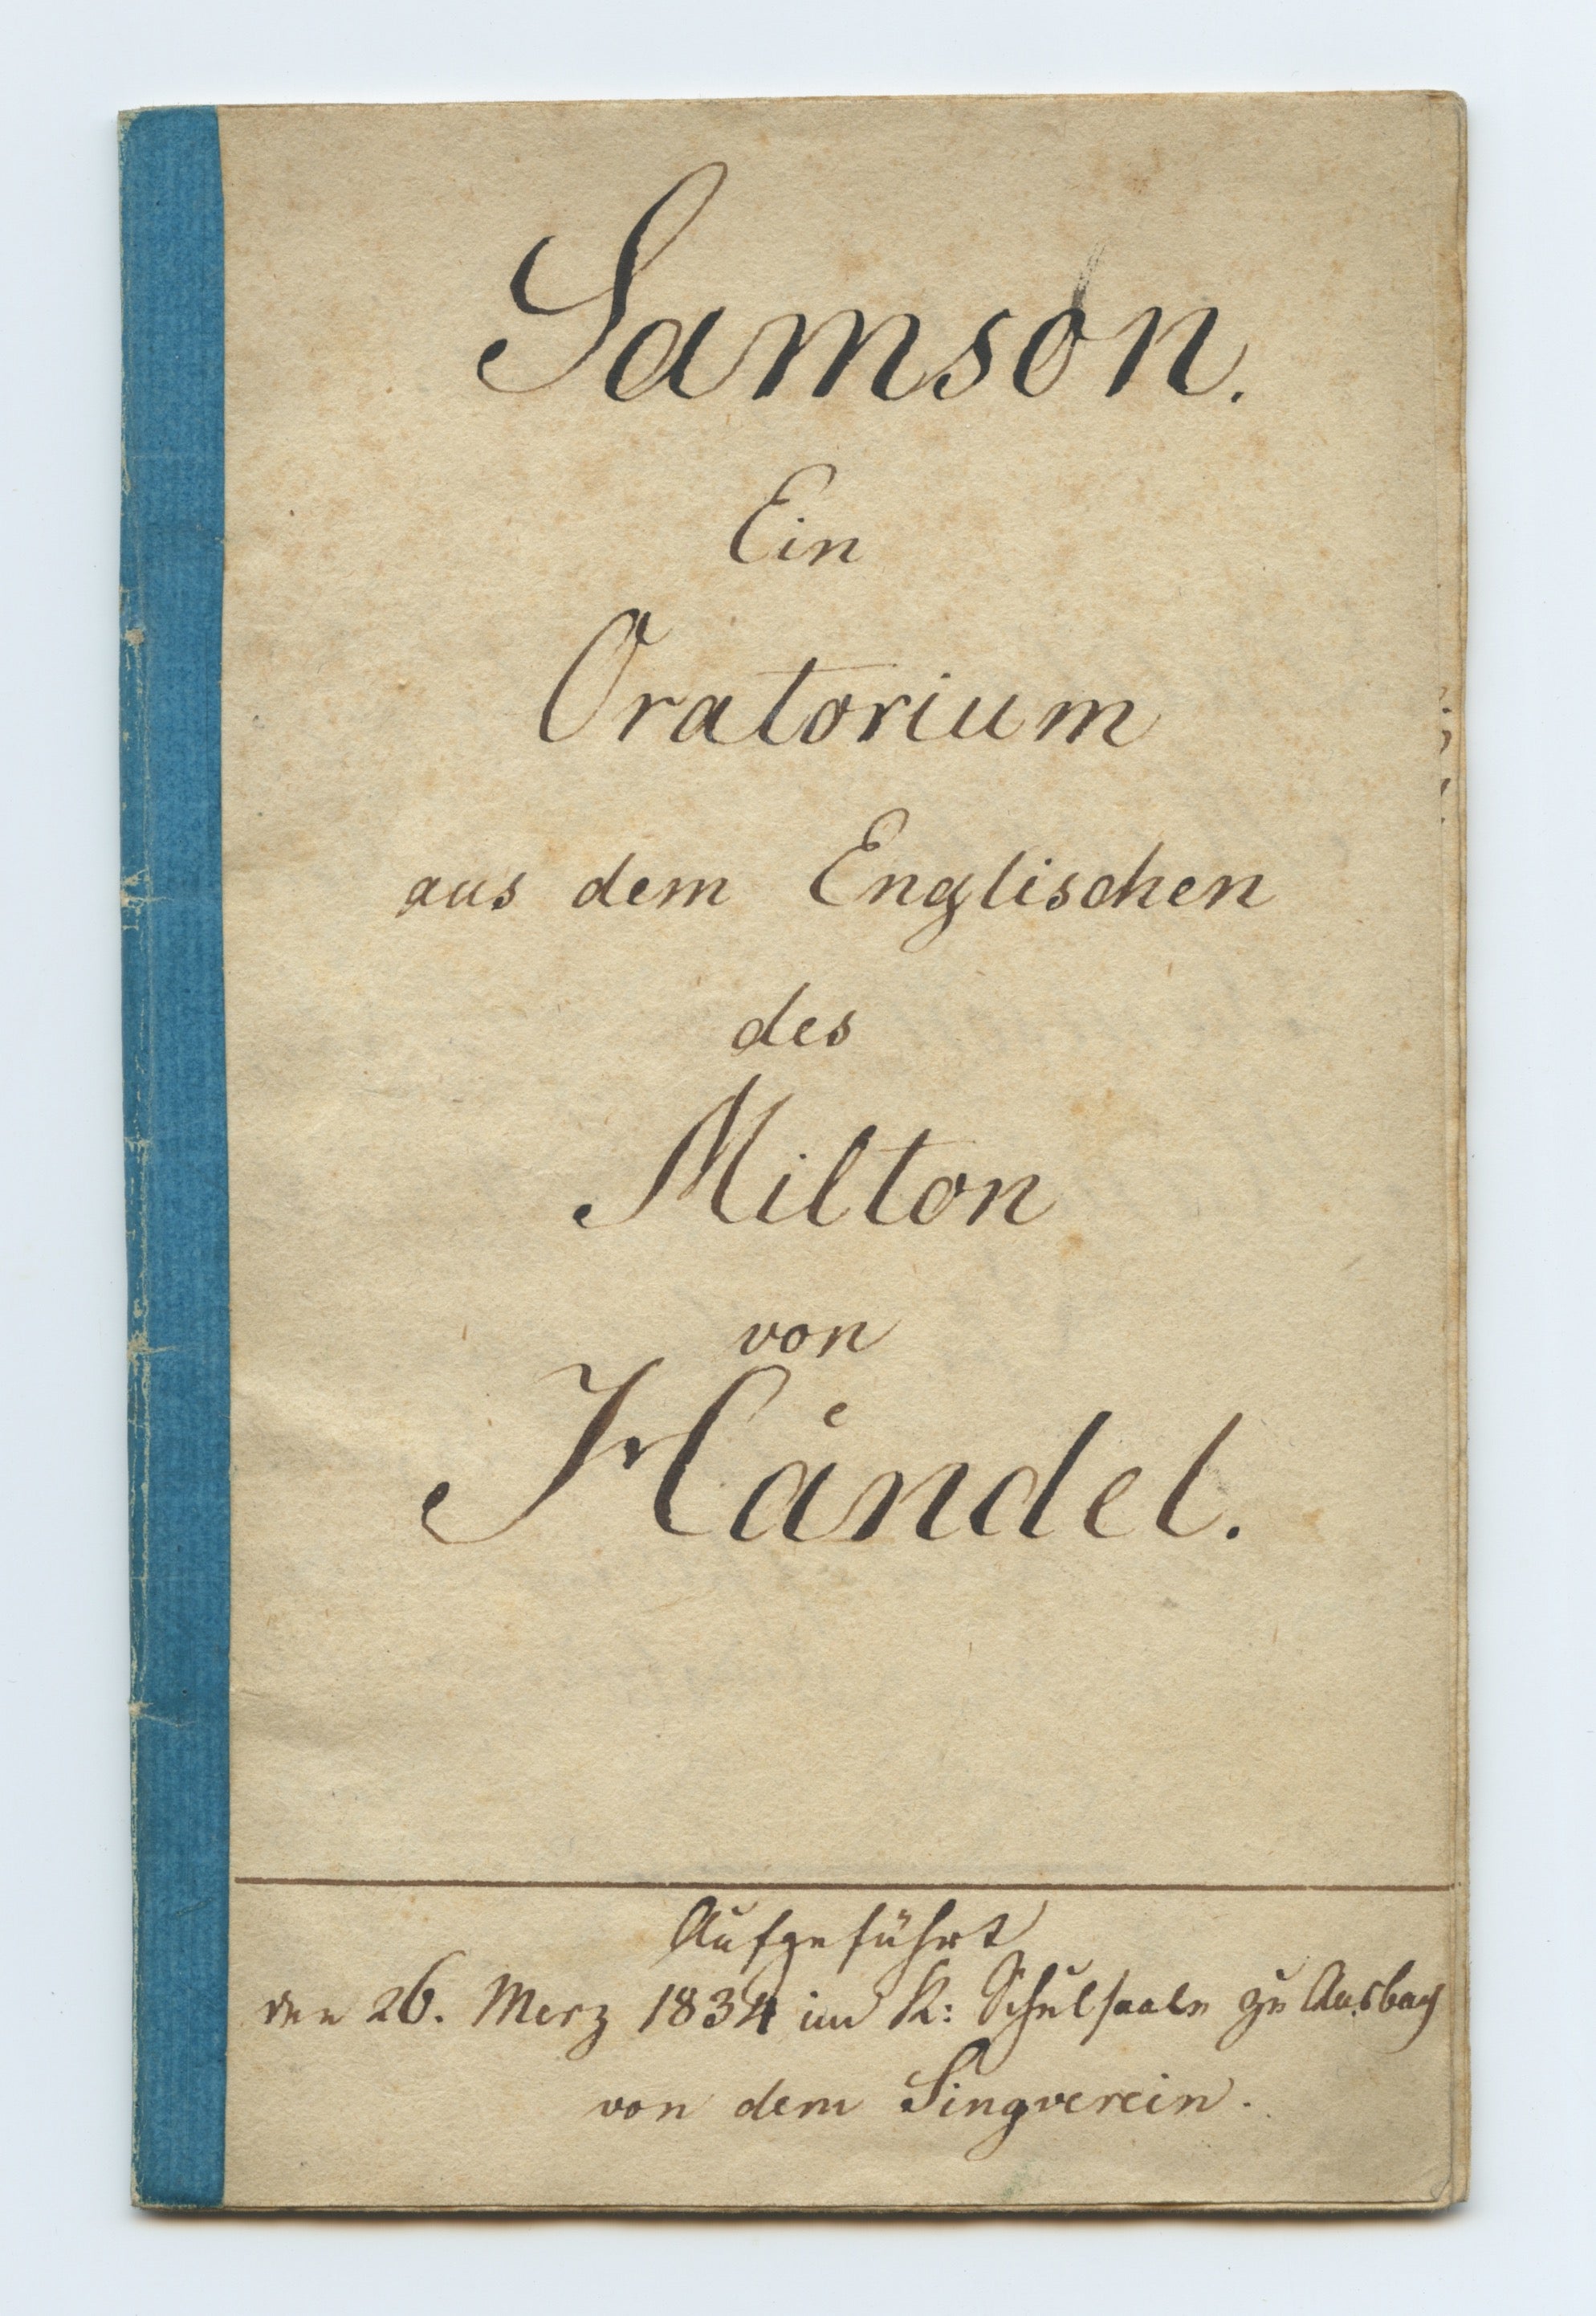 Samson.
Ein
Oratorium
aus dem Englischen
des
Milton
von
Håndel.
Aufgeführt
den 26. Merz 1834 im K: Schulsaale zu Ansbach
von dem Singverein.